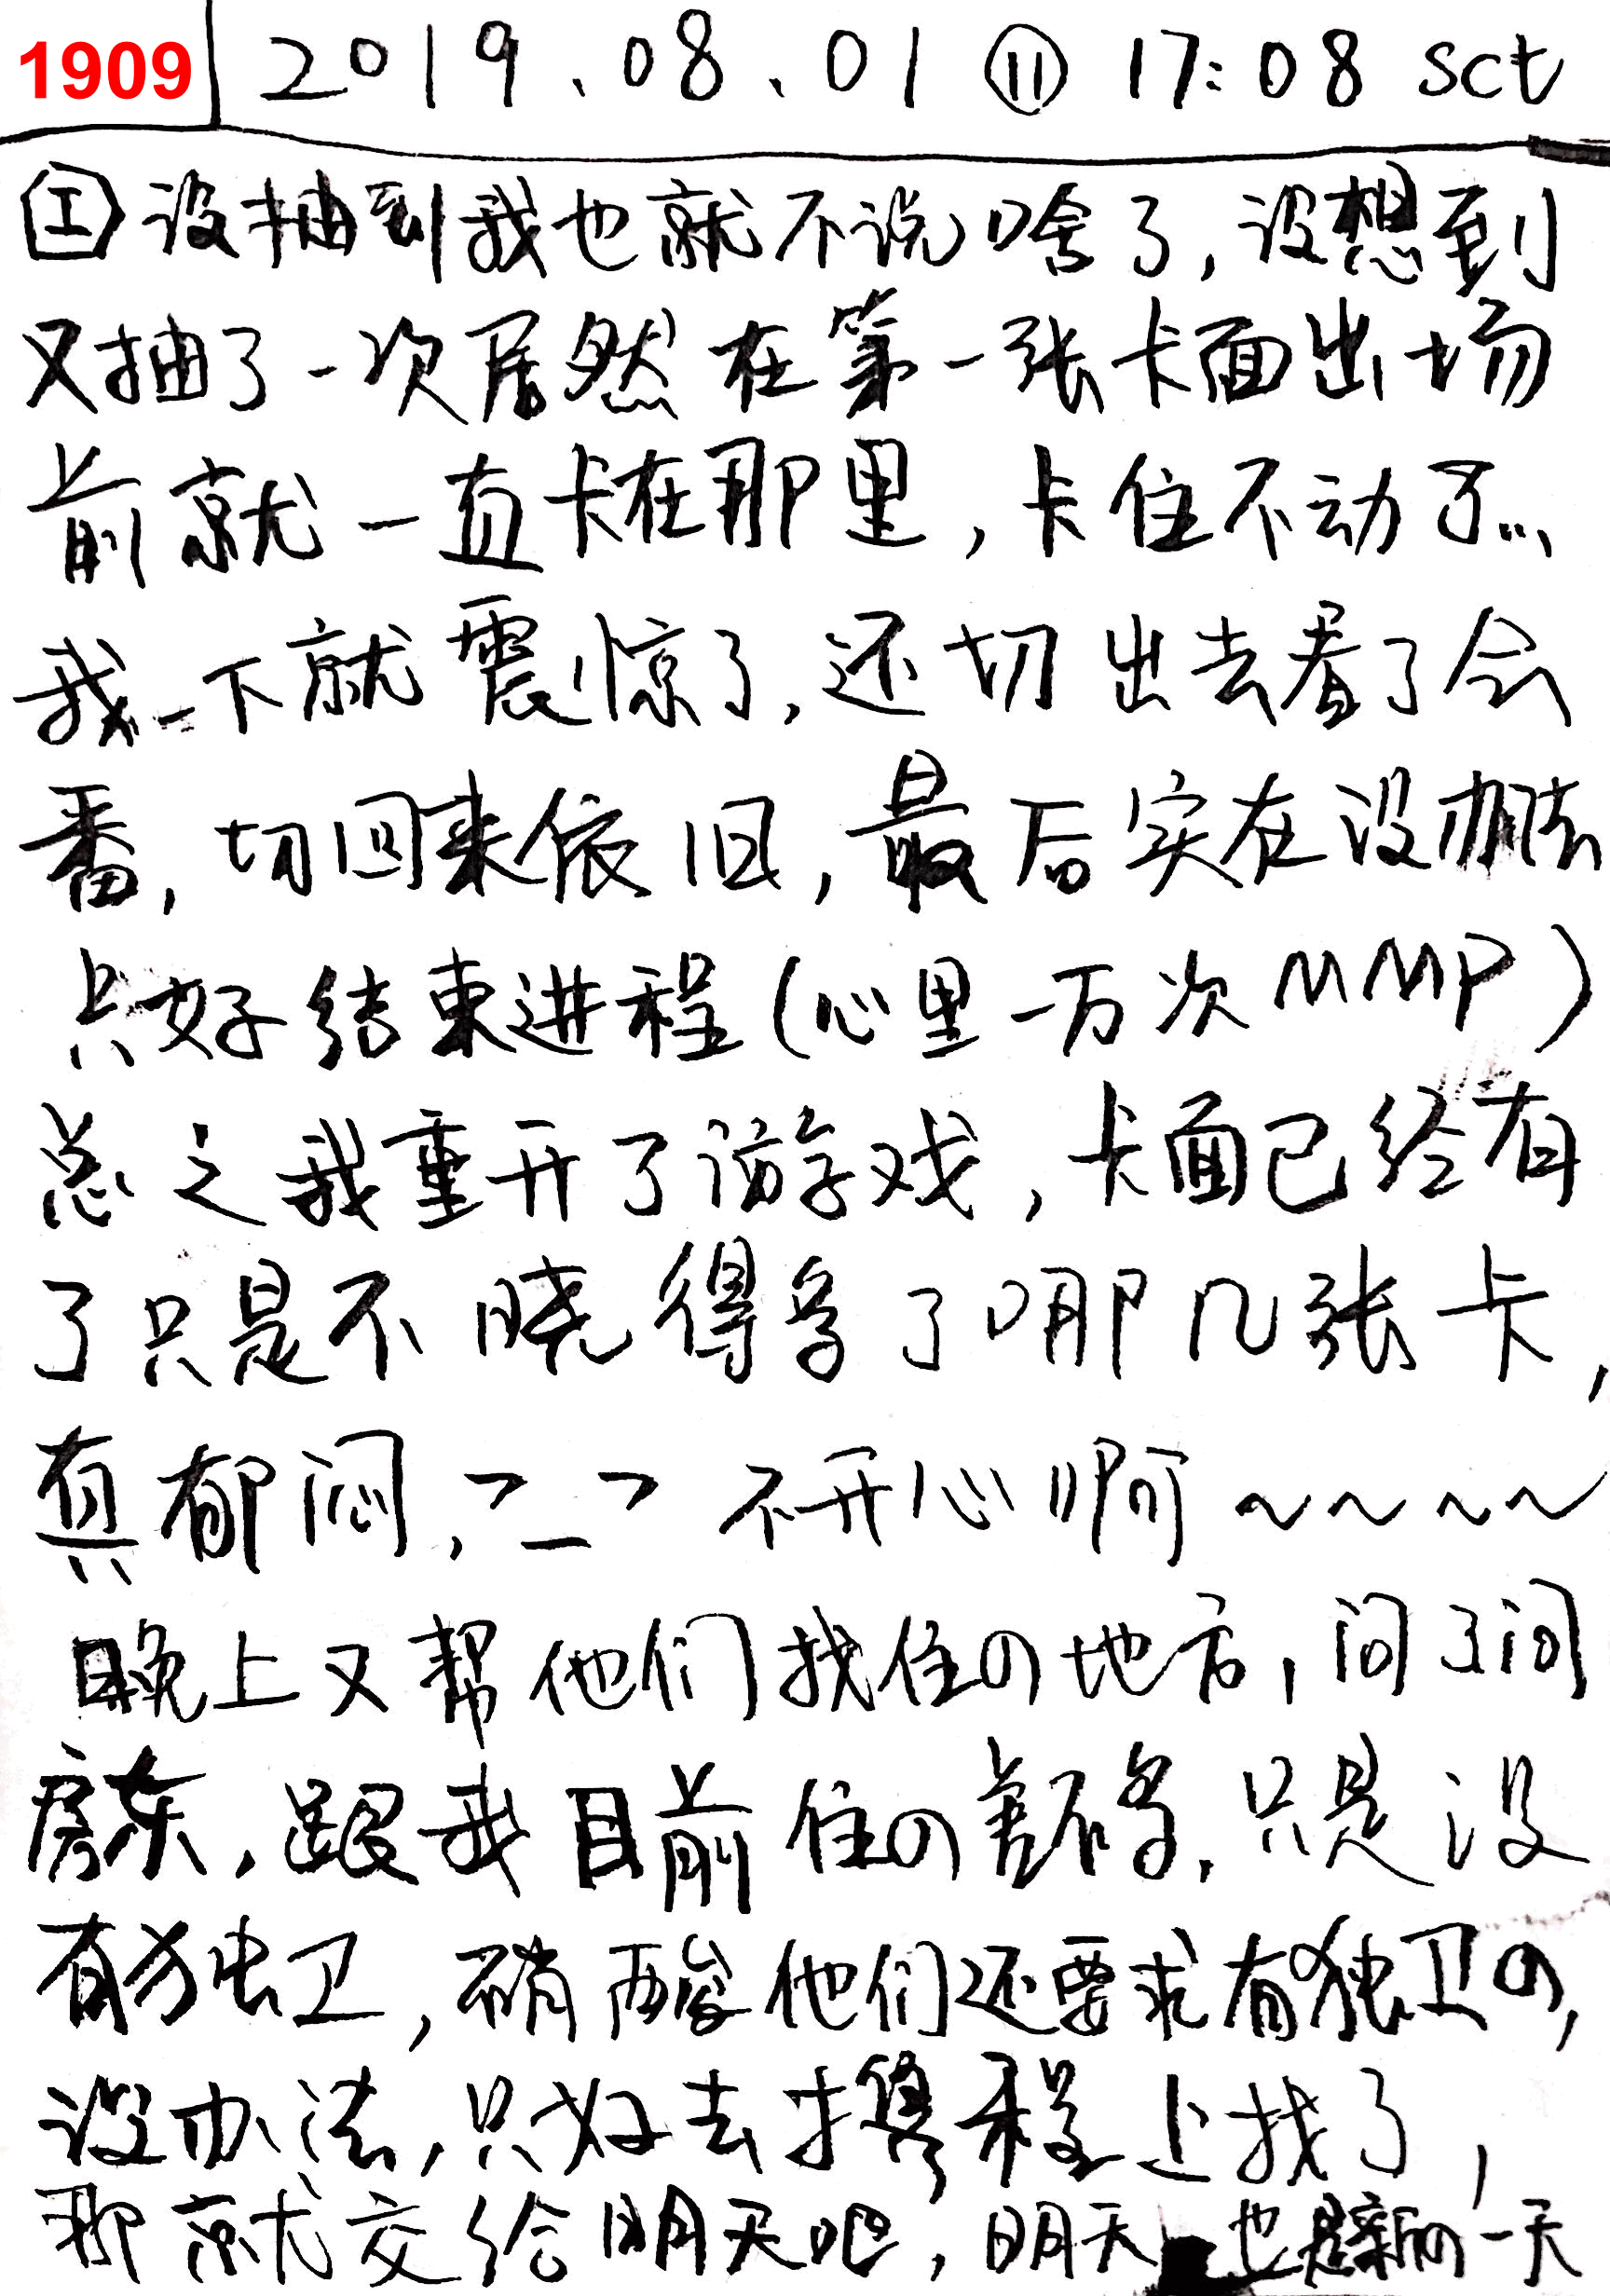 1909 2019.08.01 ⑪ 17:08 sct
工 没抽到我也就不说啥了,没想到
又抽了一次居然在第一张卡面出场
前就一直卡在那里,卡住不动了...
我一下就震惊了,还切出去看了会
番,切回来依旧,最后实在没办法
只好结束进程(心里一万次MMP)
总之我重开了游戏,卡面已经有
了只是不晓得多了哪几张卡,
真郁闷,¬_¬ 不开心啊~~~~
晚上又帮他们找住の地方,问了问
房东,跟我目前住の差不多,只是没
有独卫,他们还要求有独卫の,
没办法,只好去携程上找了,
那就交给明天吧,明天也是新の一天